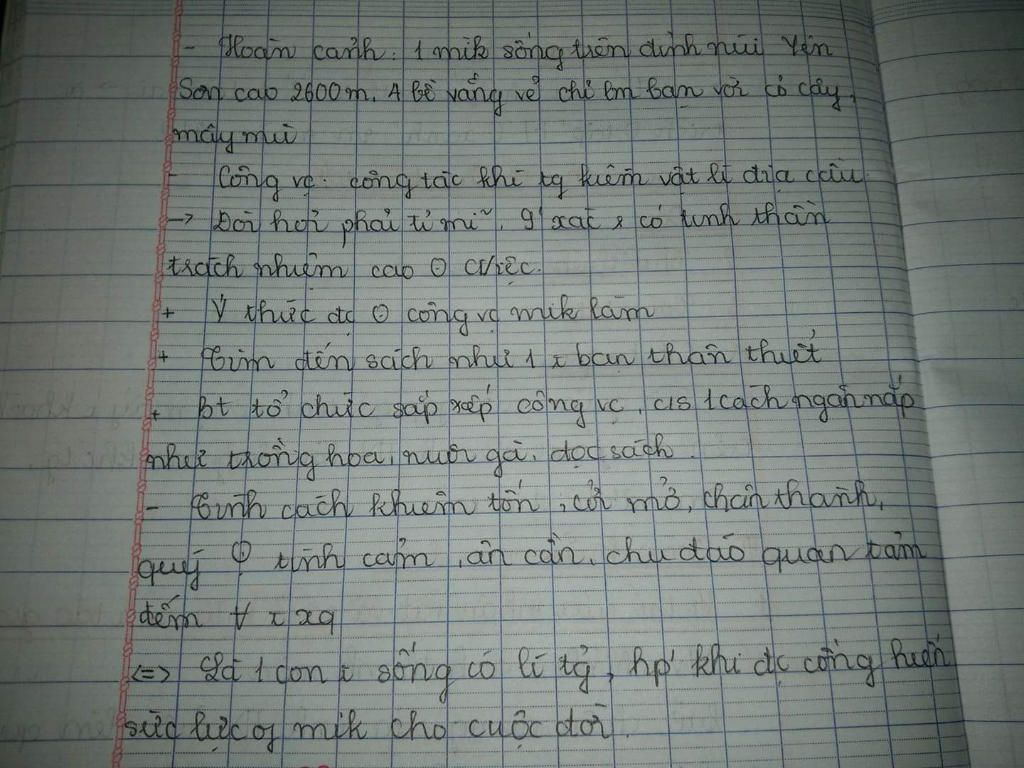 - Hoàn cảnh: 1 mik sống trên đỉnh núi Yên
Sơn cao 2600m. 4 bề vắng vẻ chỉ lm bạn với cỏ cây,
mây mù
- Công vc: công tác khí tg kiêm vật lí địa cầu
-> Đòi hỏi phải tỉ mỉ, 9' xác & có tinh thần
trách nhiệm cao cviệc.
+ Ý thức đc công vc mik làm
+ Tìm đến sách như 1 x bạn thân thiết
+ Bt tổ chức sắp xếp công vc, c/s 1 cách ngăn nắp
như trồng hoa, nuôi gà, đọc sách.
- Tính cách khiêm tốn, cởi mở, chân thành,
quý tình cảm, ân cần, chu đáo quan tâm
đến ∀ x xq
<=> Là 1 con x sống có lí tg, hp' khi đc cống hiến
sức lực of mik cho cuộc đời.